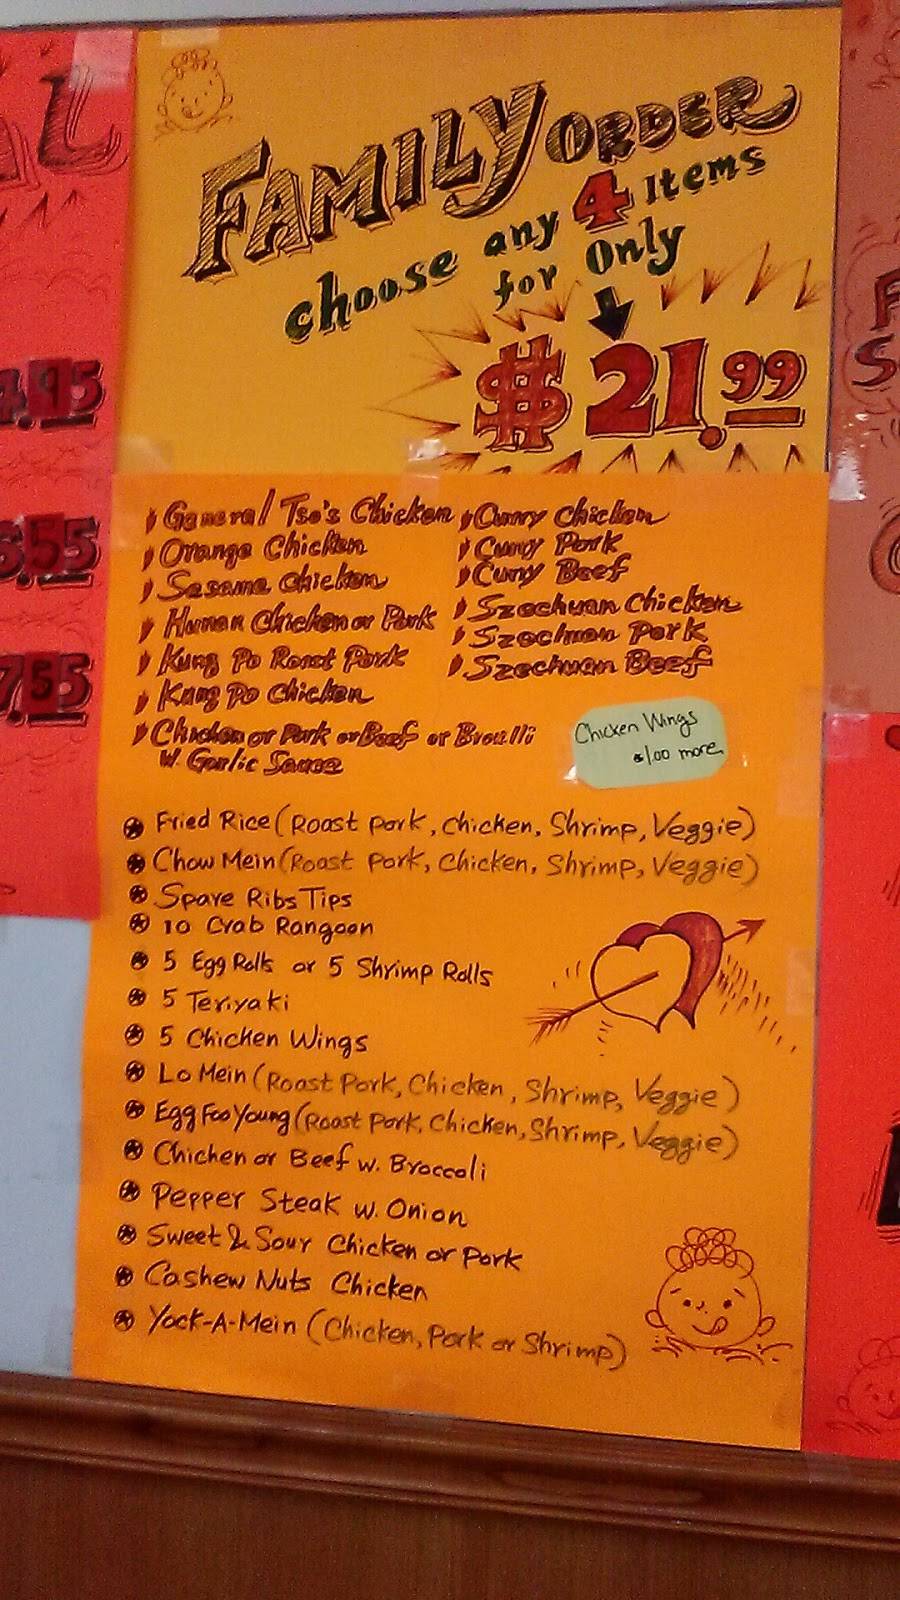 FAMILY ORDER
choose any 4 Items
for Only
$21.99
General Tso's Chicken
Orange Chicken
Sesame Chicken
Hunan Chicken or Pork
Kung Po Roast Pork
Kung Po Chicken
Chicken or Pork or Beef or Broulli
W. Garlic Sauce
Curry Chicken
Curry Pork
Curry Beef
Szechuan Chicken
Szechuan Pork
Szechuan Beef
Chicken Wings
$1.00 more
Fried Rice (Roast Pork, Chicken, Shrimp, Veggie)
Chow Mein (Roast Pork, Chicken, Shrimp, Veggie)
Spare Ribs Tips
10 Crab Rangoon
5 Egg Rolls or 5 Shrimp Rolls
5 Teriyaki
5 Chicken Wings
Lo Mein (Roast Pork, Chicken, Shrimp, Veggie)
Egg Foo Young (Roast Pork, Chicken, Shrimp, Veggie)
Chichen or Beef w. Broccoli
Pepper Steak w. Onion
Sweet & Sour Chicken or Pork
Cashew Nuts Chicken
Yock-A-Mein (Chicken, Pork or Shrimp)
7.55